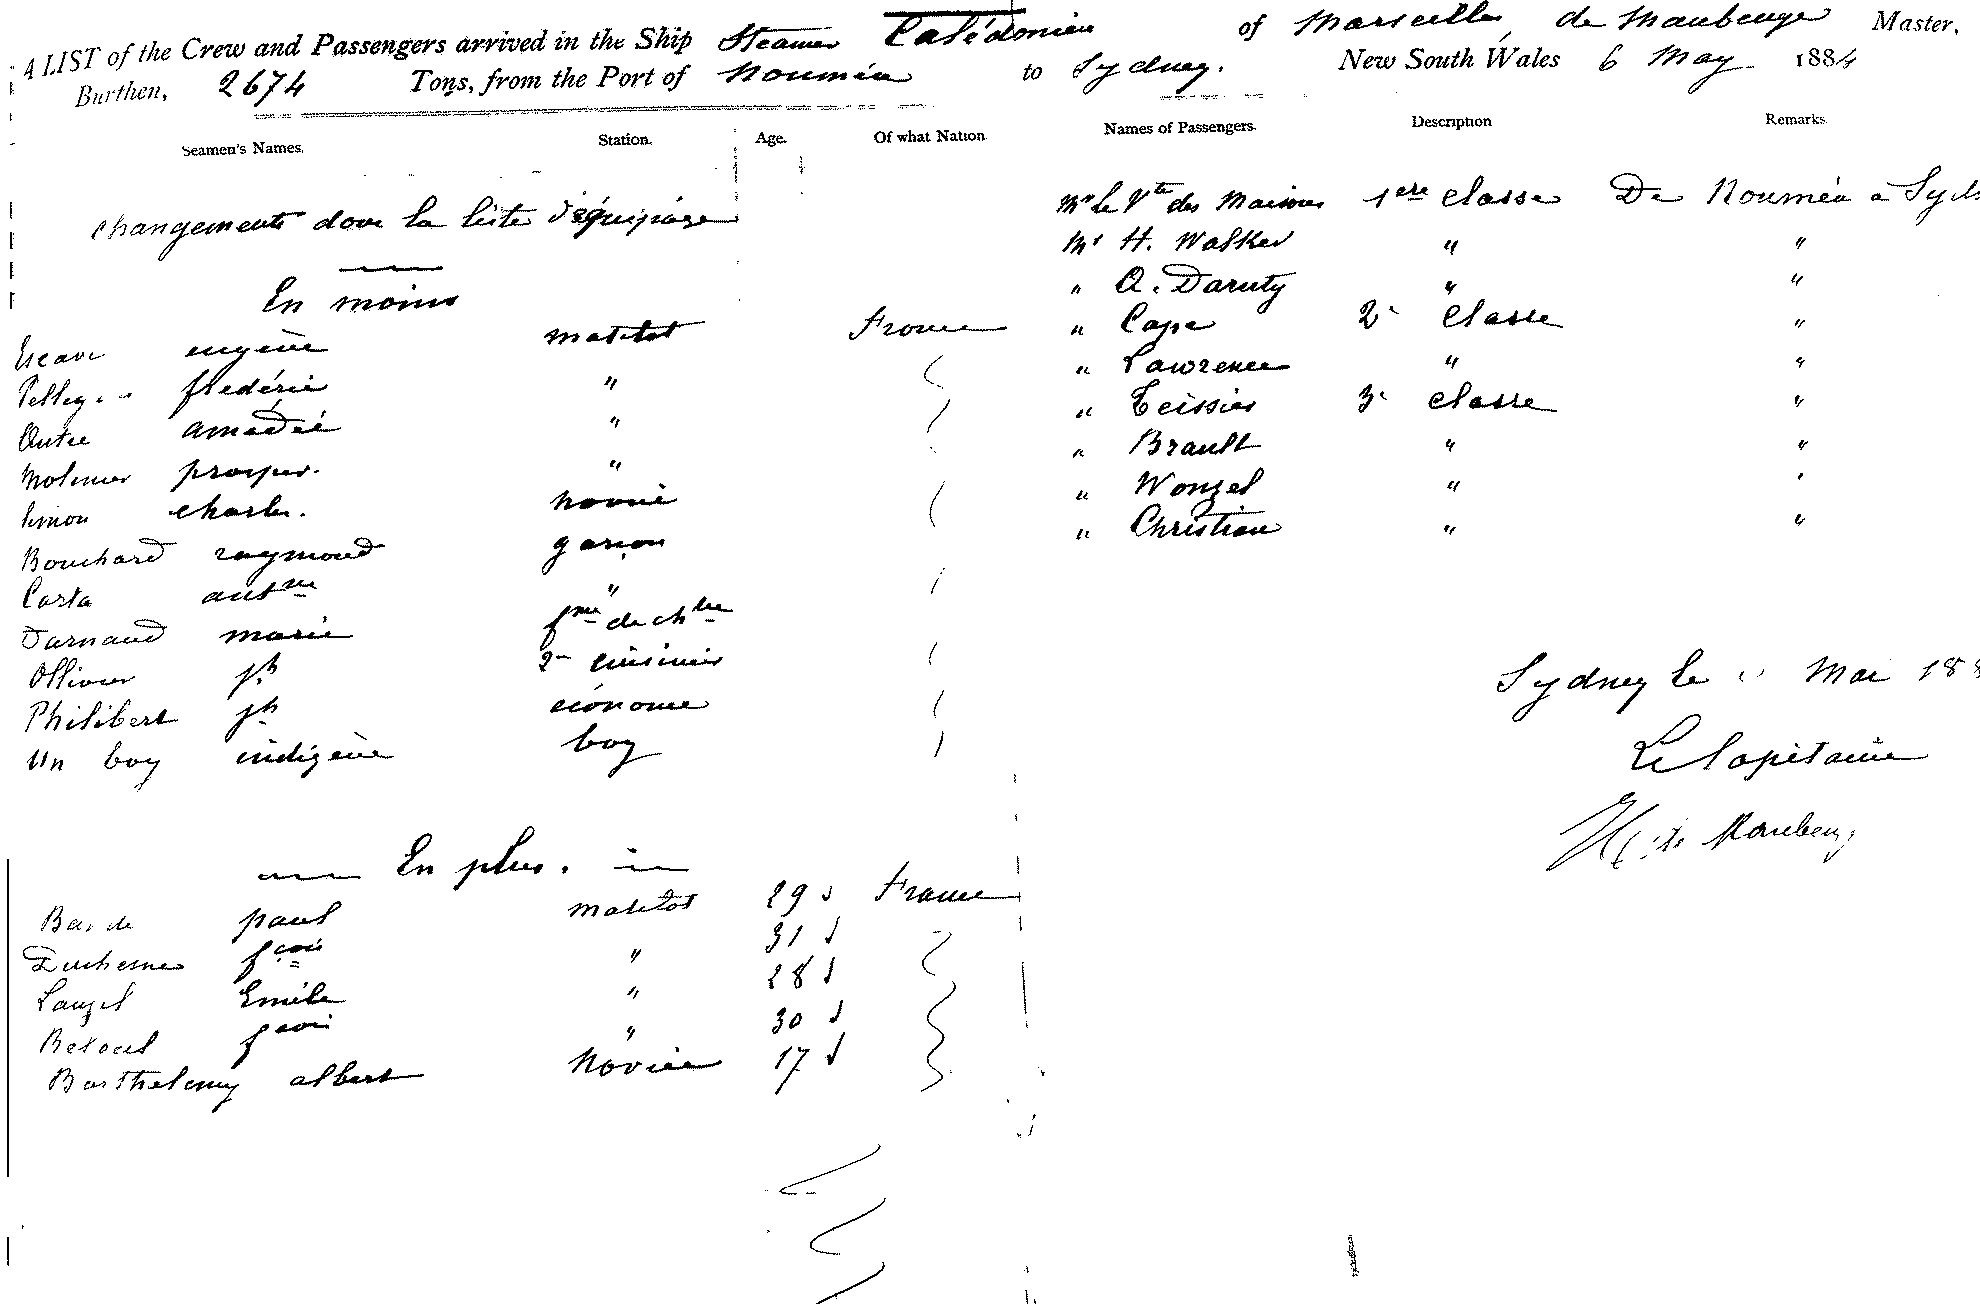 A LIST of the Crew and Passengers arrived in the Ship Steamer Calédonien of Marseille, de Maubeuge Master,
Burthen, 2674 Tons, from the Port of Nouméa to Sydney. New South Wales 6 May 1884
Seamen's Names. Station. Age. Of what Nation
changements dans la liste d'équipage
En moins
Escave eugène matelot France
frédéric "
Outre amédée "
Molinier prosper. "
Simon charles. novice
Bouchard raymond garçon
Costa antne "
Darnaud marie fme de chbre
Ollivier jh 2e cuisinier
Philibert jh économe
Un boy indigène boy
En plus.
Barde paul matelot 29 d France
Duchesne fçois " 31 d
Lauzel Emile " 28 d
Betoul fçois " 30 d
Barthelemy albert Novice 17 d
Names of Passengers. Description Remarks.
Mr le Vte des Maisons 1ere classe De Nouméa a Syd
Mr H. Walker " "
" A. Daruty " "
" Cape 2e classe "
" Lawrence " "
" Teissier 3e classe "
" Brault " "
" Wonzel " "
" Christian " "
Sydney le Mai 188
Le Capitaine
H. de Maubeuge